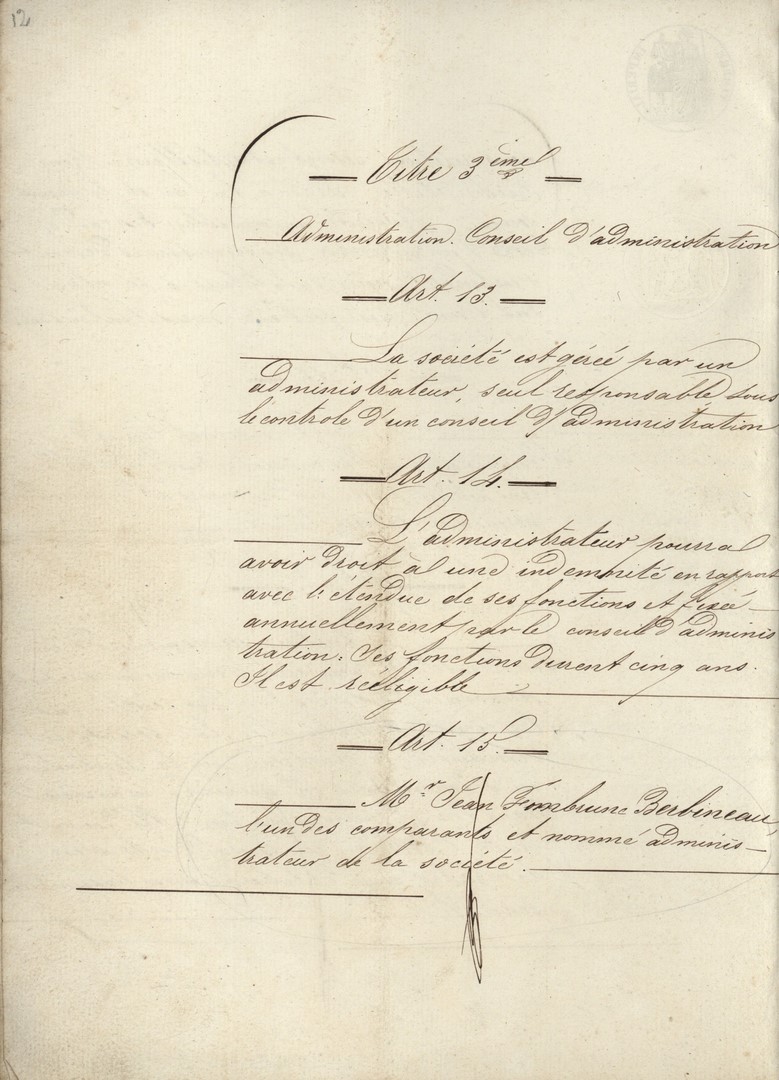 12
Titre 3ème
Administration. Conseil d'administration
Art. 13.
La société est gérée par un
administrateur, seul responsable sous
le controle d'un conseil d'administration
Art. 14.
L'administrateur pourra
avoir droit à une indemnité en rapport
avec l'étendue de ses fonctions et fixée
annuellement par le conseil d'adminis
tration. Ses fonctions durent cinq ans.
Il est rééligible
Art. 15.
Mr Jean Fombrune Berbineau,
l'un des comparants et nommé adminis-
trateur de la société.